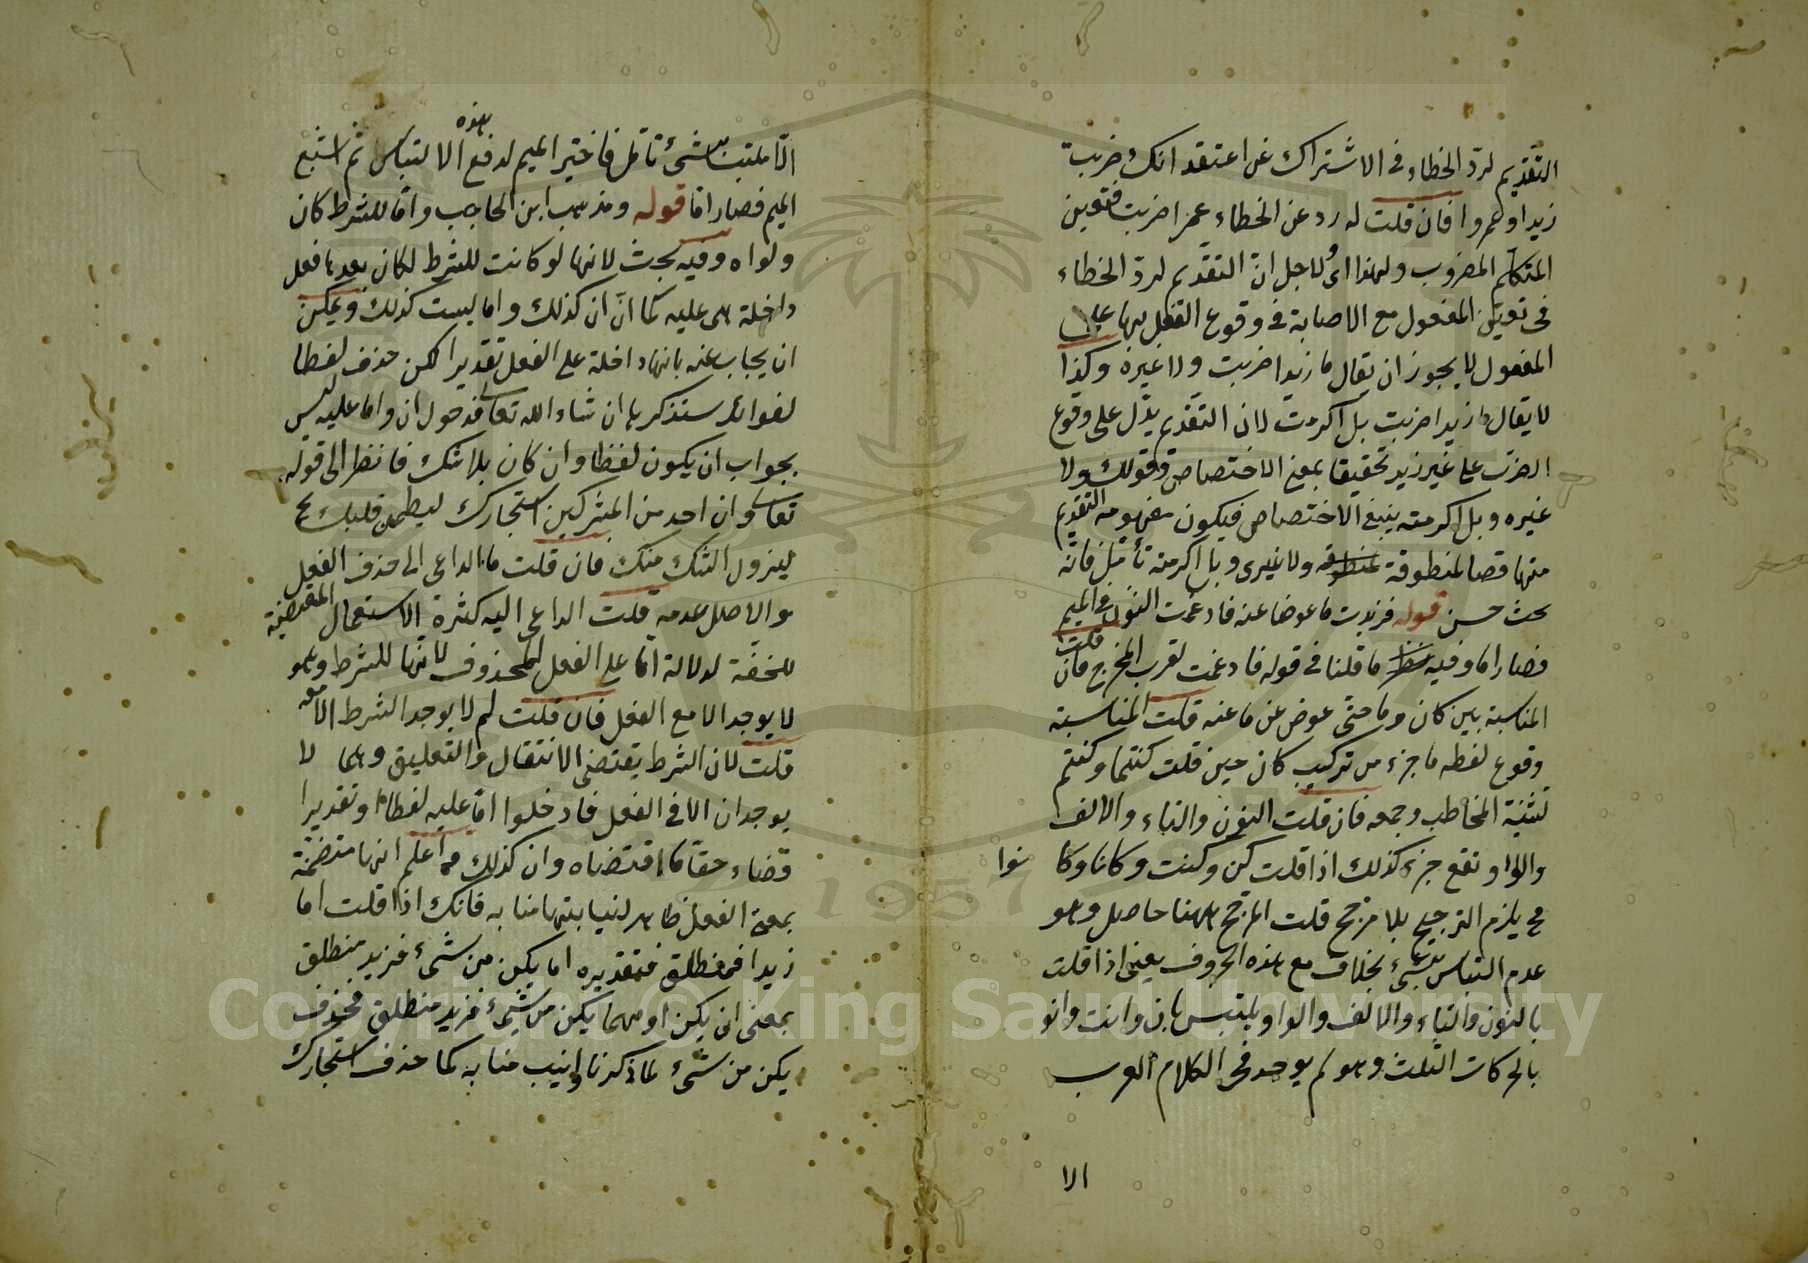 التقديم لرد الخطاء في الاشتراك عن اعتقد انك ضربت
زيدا وعمروا فان قلت له رد عن الخطاء عمرا ضربت فتعين
المتكلم المضروب ولهذا اى ولاجل ان التقديم لرد الخطاء
في تعيين المفعول مع الاصابة في وقوع الفعل بها على
المفعول لا يجوز ان يقال ما زيدا ضربت ولا غيره وكذا
لا يقال ما زيدا ضربت بل اكرمت لان التقديم يدل على وقوع
الضرب على غير زيد تحقيقا بمعنى الاختصاص وقولك ولا
غيره وبل اكرمته ينفي الاختصاص فيكون مفهوم التقديم
مناقضا لمنطوقة ولا غيرى وبل اكرمته تأمل فانه
بحث حسن قوله فزيدت ما عوضا عنه فادغمت النون في الميم
فصار اما وفيه ما قلنا في قوله فادغمت لقرب المخرج فان قلت
المناسبة بين كان وما حتى عوض عن ما عنه قلت المناسبة
وقوع لفظه ما جزء من تركيب كان حين قلت كنتما وكنتم
تثنية المخاطب وجمعه فان قلت النون والتاء والالف
والواو تقع جزء كذلك اذا قلت كن وكنت وكانا وكانوا
فح يلزم الترجيح بلا مرجح قلت المرجح ههنا حاصل وهو
عدم التباس بشئ بخلاف مع هذه الحروف يعنى اذا قلت
بالنون والتاء والالف والواو يلتبس بان وانت وانو
بالحركات الثلث وهو لم يوجد في الكلام العرب
الا
الا ملتبس بشئ تامل فاختير الميم لدفع هذه الالتباس ثم اشبع
الميم فصار اما قوله ومذهب ابن الحاجب واما للشرط كان
ولواه وفيه بحث لانها لو كانت للشرط لكان بعدها فعل
داخلة هى عليه كما ان ان كذلك واما ليست كذلك ويمكن
ان يجاب عنه بانها داخلة على الفعل تقديرا لكن حذف لفظا
لفوائد ستذكر ها ان شاء الله تعالى فدخول ان واما عليه ليس
بجواب ان يكون لفظا وان كان بلا شك فانظر الى قوله
تعالى وان احد من المشركين استجارك ليطمئن قلبك
ليزول الشك منك فان قلت ما الداعى الى حذف الفعل
والاصل عدمه قلت الداعى اليه كثرة الاستعمال المقتضية
للخفة لدلالة اما على الفعل المحذوف لانها للشرط وهو
لا يوجد الا مع الفعل فان قلت لم لا يوجد الشرط الا معه
قلت لان الشرط يقتضى الانتقال والتعليق وهما لا
يوجدان الا في الفعل فادخلوا اما عليه لفظا او تقديرا
قضاء حقا ما اقتضاه وان كذلك ثم اعلم انها متضمنة
بمعنى الفعل ظاهر لنيابتها منابه فانك اذا قلت اما
زيدا فمنطلق فتقديره اما يكن من شئ فزيد منطلق
بمعنى ان يكن او مهما يكن من شئ فزيد منطلق فحذف
يكن من شئ لما ذكرنا وانيب منابه كما حذف استجارك
1957
Copyright © King Saud University